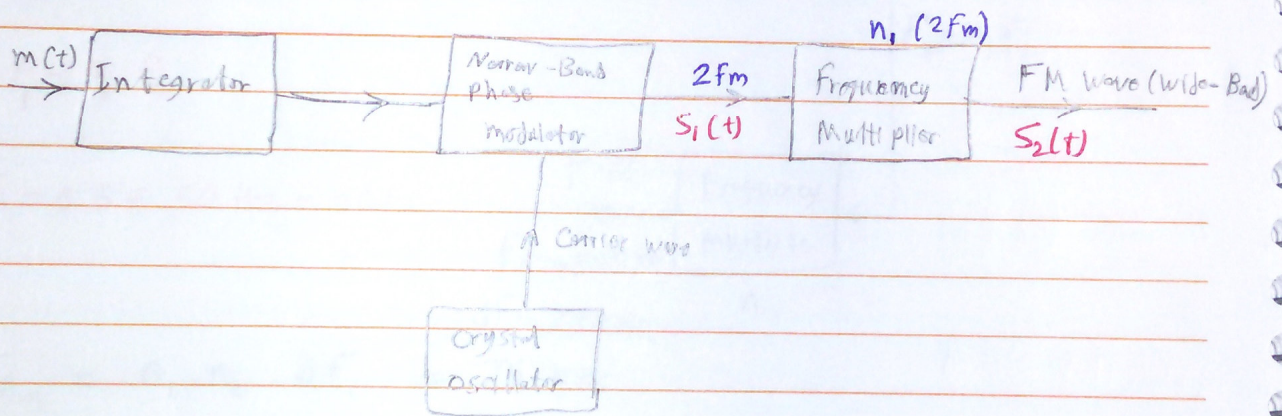 n, (2fm)
m(t)
Integrator
Narrow-Band
Phase
modulator
2fm
S₁(t)
frequency
Multiplier
FM wave (wide-Bad)
S₂(t)
Carrier wave
Crystal
oscillator